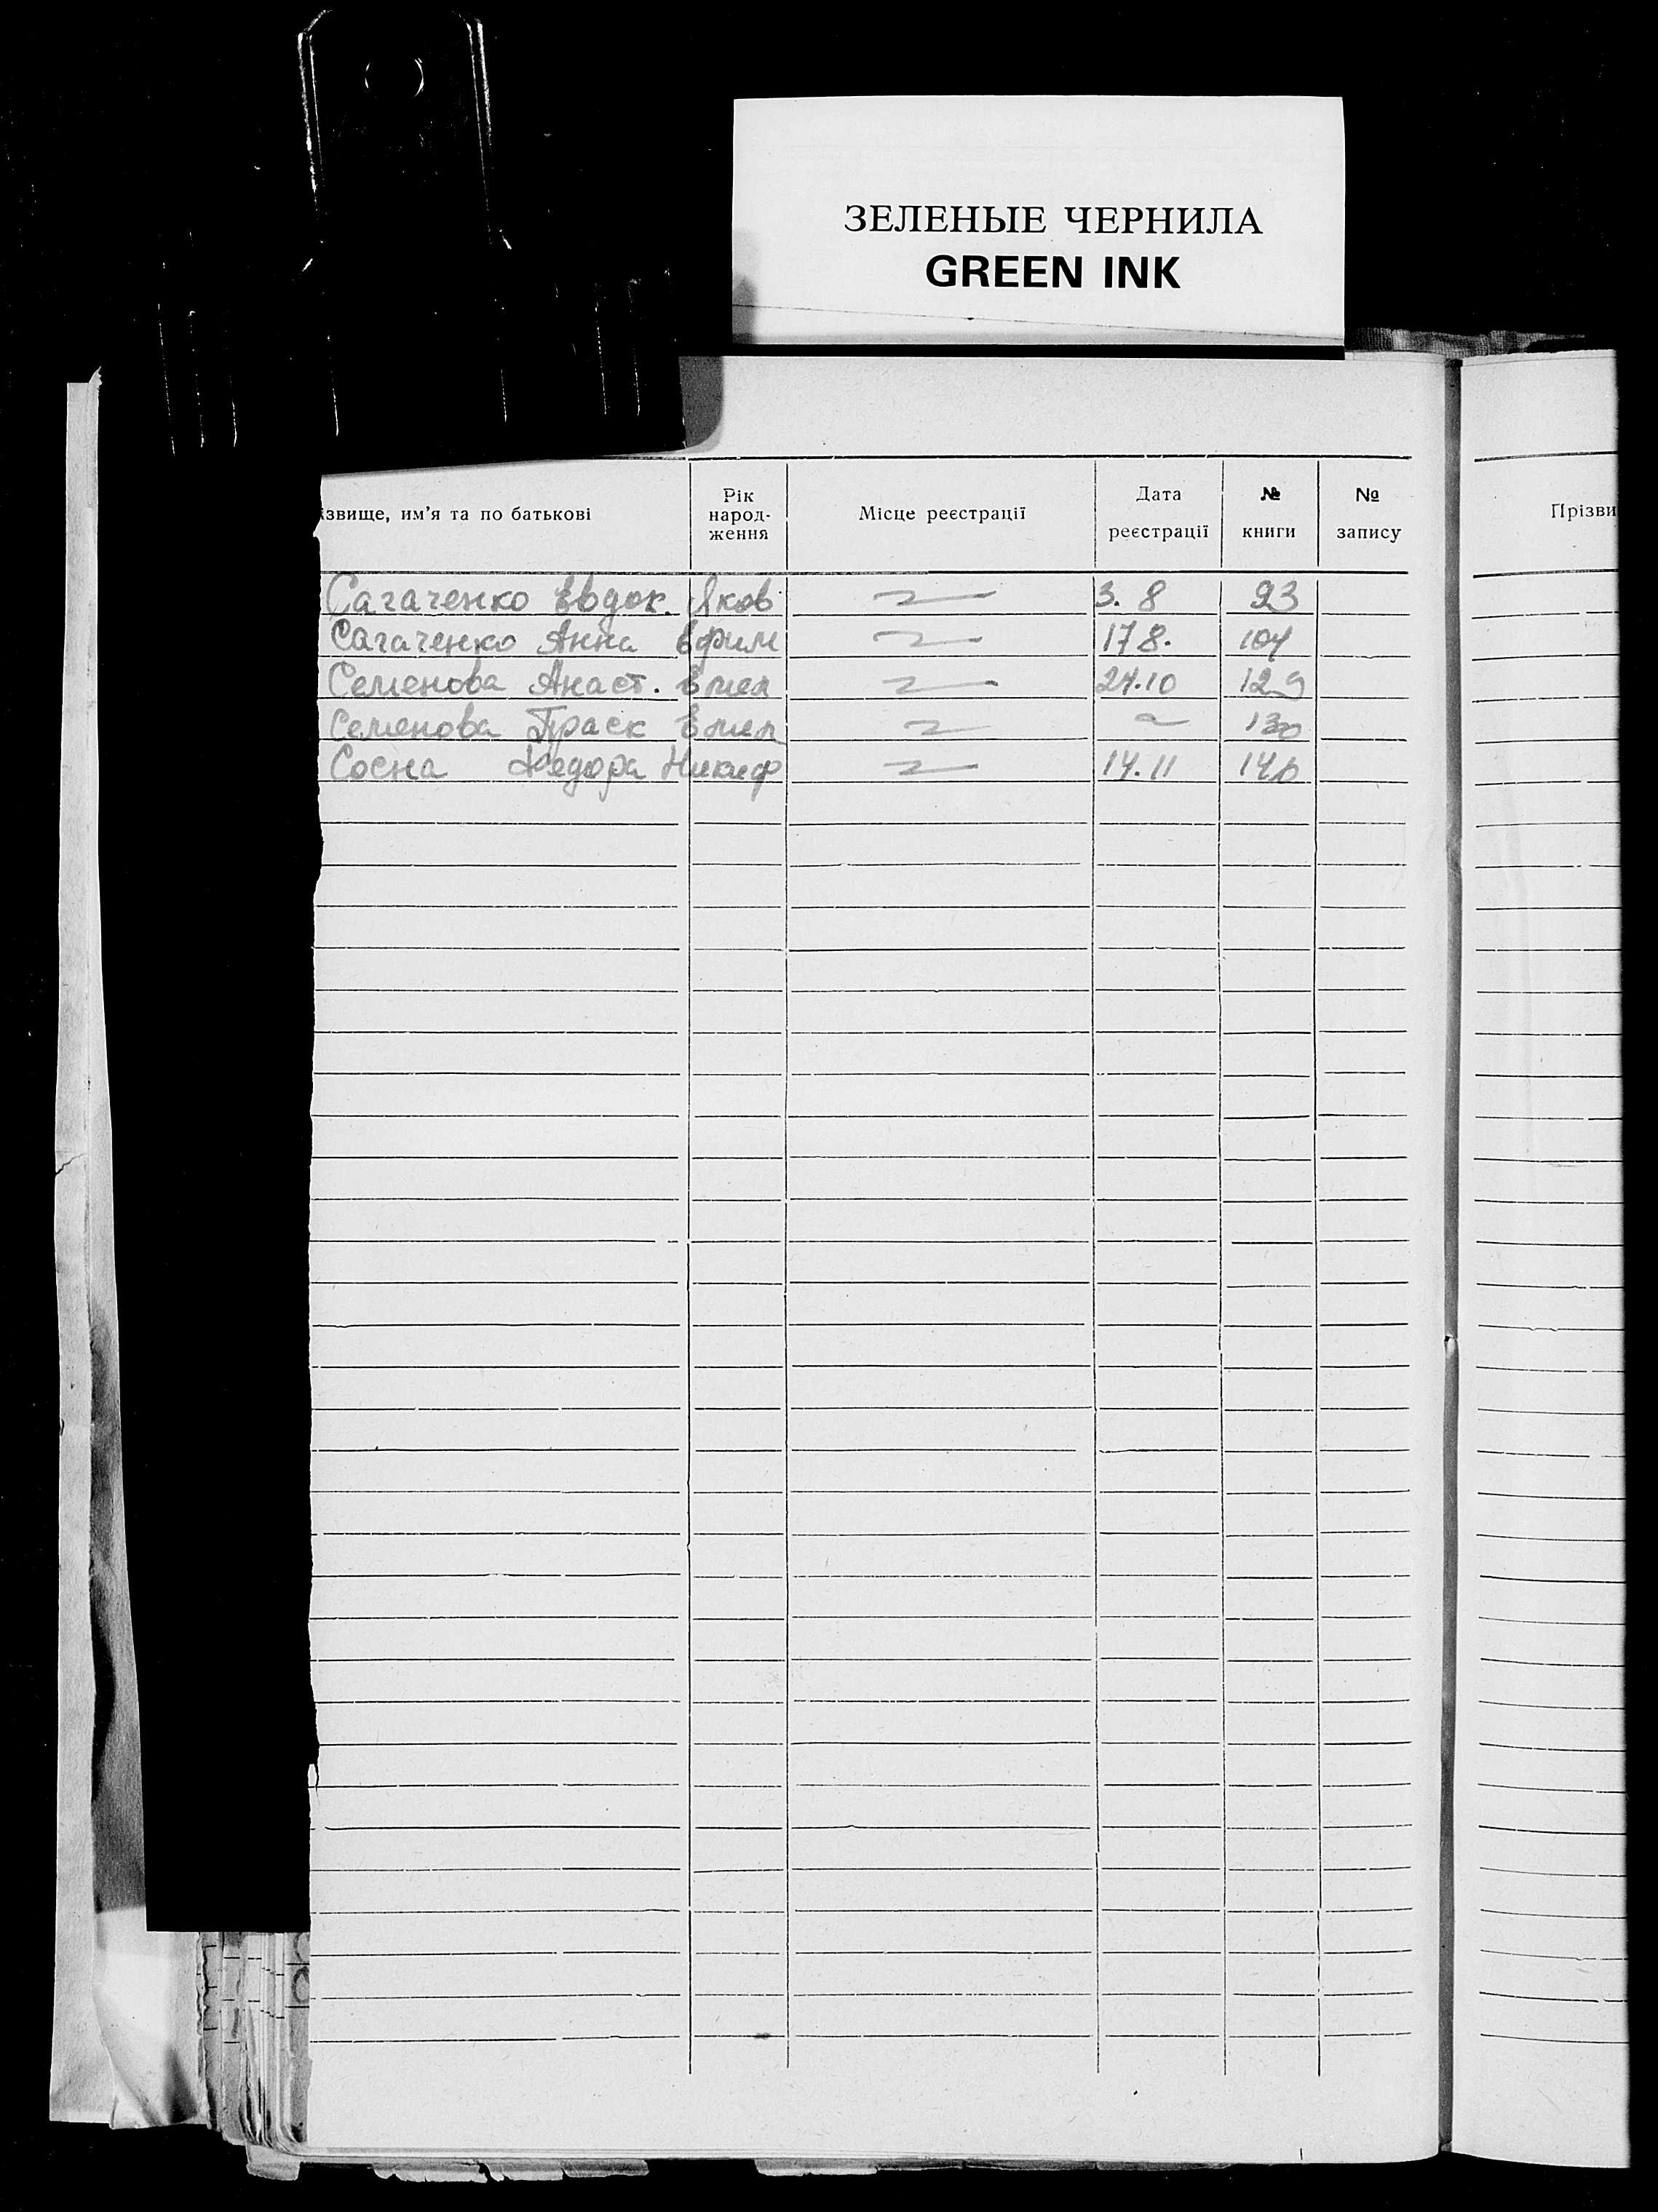 ЗЕЛЕНЫЕ ЧЕРНИЛА
GREEN INK
ізвище, им'я та по батькові
Рік народ- ження
Місце реєстрації
Дата реєстрації
№ книги
№ запису
Прізви
Сагаченко Евдок. Яков 3. 8 93
Сагаченко Анна Ефим 17 8. 104
Семенова Анаст. Емел 24.10 129
Семенова Праск Емел 130
Сосна Федора Никиф 14.11 146